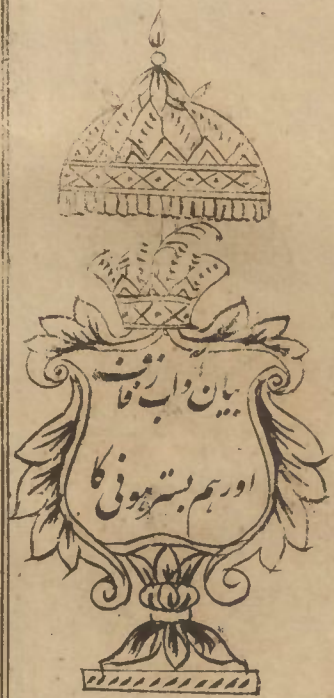 بیان آداب زفاف
اور ہم بستر ہونی کا